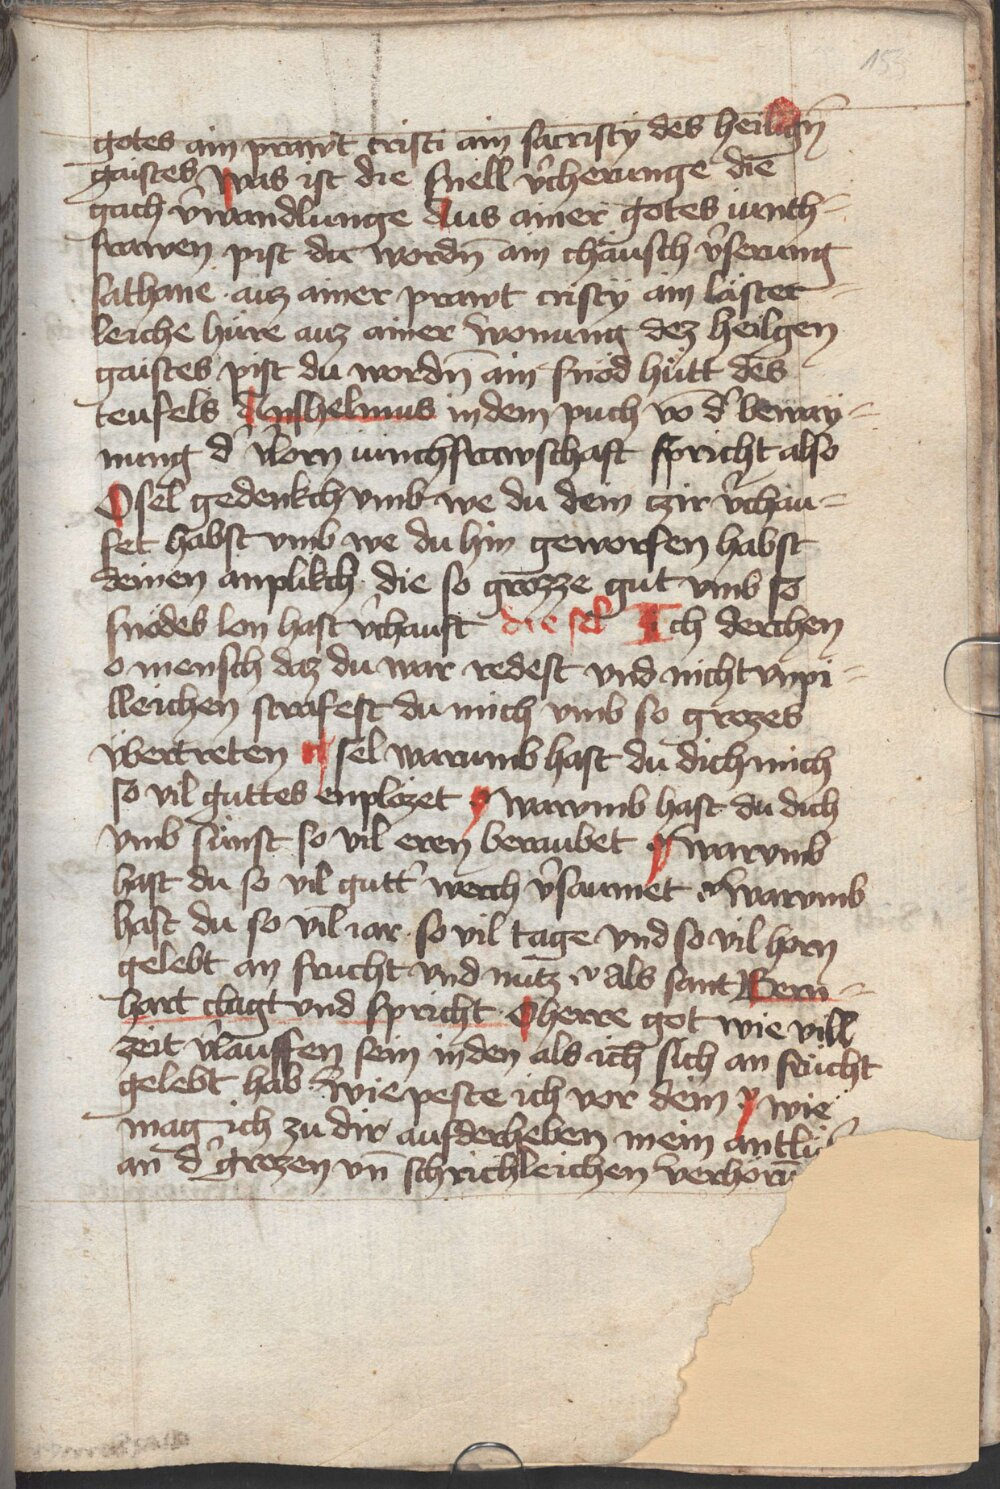 gotes ain prawt cristi ain sacristy des heiligñ
gaistes Was ist die snell v̓cherunge die
gach v̓wandlunge Aus ainer gotes iunch-
frawen pist du wordñ ain chäusch v̓serung
sathane · auz ainer prawt cristy ain läster-
leiche hure auz ainer wonung dez heilgen
gaistes pist du wordñ ain snöd hütt des
teufels Anshelmus in dem puch vō d̓ beway-
nung d̓ v̓lorn iunchfrawschaft spricht also
O sel gedenkch vmb we du dein czir v̓chau-
fet habst vmb we du hin geworfen habst
deinen anplikch · die so grozze gut vmb so
snödes lon hast v̓chauft die sel Ich derchen
o mensch daz du war redest vnd nicht vnpi-
lleichen strafest du mich vmb so grozes
übertreten O sel warumb hast du dich mich
so vil guttes enplözet warumb hast du dich
vmb sünst so vil eren beraubet warvmb
hast du so vil gutt̓ werch v̓saumet warvmb
hast du so vil iar · so vil tage vnd so vil horn
gelebt an frucht vnd nutz als sant Bern-
hart clagt vnd spricht · O herre got wie vill
zeit v̓lauffen sein in den als ich sich an frücht
gelebt hab wie peste ich vor dein wie
mag ich zu dir aufderheben mein
an d̓ grozen vn̄ schrichleichen